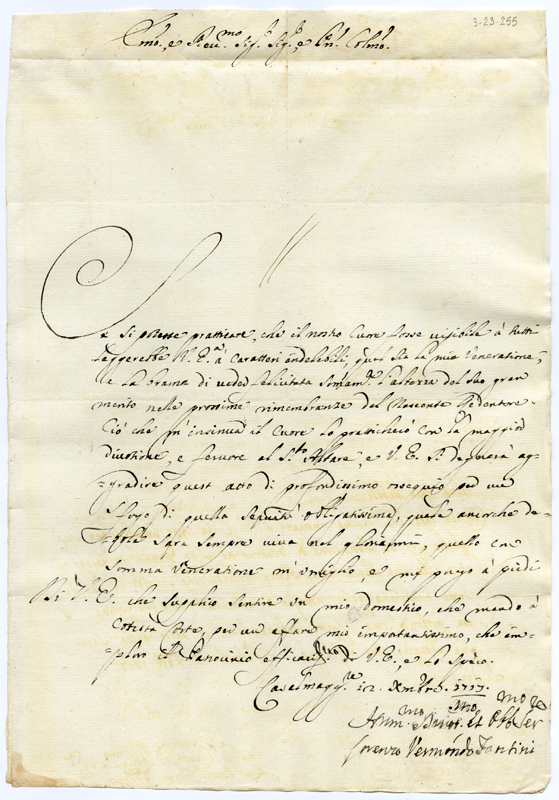 3-23-255
Emo, e Reumo Sigr. Sigr., e Pñ. Colmo.
Se si potesse pratticare, che il nostro Cuore fosse visibile à tutti
Leggerebbe V. E. à Caratteri indelebili, qual sia la mia Veneratione,
e la brama di veder felicitata l'altezza del suo gran
merito nelle prossime rimembranze del Nascente Redentore.
Ciò che m'insinua il Cuore lo pratticherò con la maggior
divotione, e fervore al Sto Altare, e V. E. si degnerà ag-
gradire quest atto di profondissimo ossequio per un
sfogo di quella servitù obligatissima, quale ancorche de-
bole sarà sempre viva nel quello con
somma Veneratione m'umiglio, e mi porgo à piedi
Di V. E. che supplico sentire un mio domestico, che mando à
cotesta Corte, per un affare mio importantissimo, che im-
ploro il Patrocinio di V. E., e lo spero.
Casalmaggre 12. Xmbre. 1717.
Hum. Et Ser
Lorenzo Vermondo Fantini